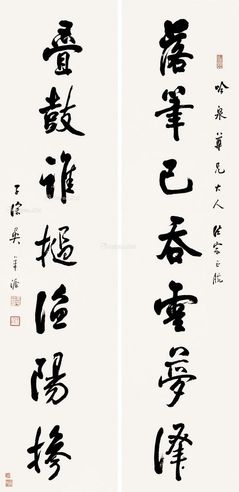 吟泉尊兄大人法家正腕
落筆已吞雲夢澤
疊鼓誰撾漁陽摻
子深吳華源